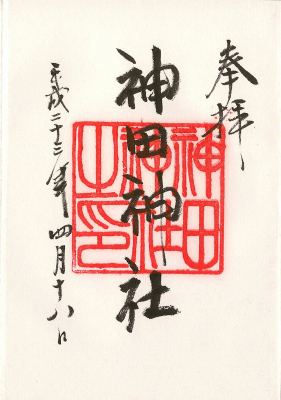 奉拝
神田神社
神田神社之印
平成二十三年四月十八日